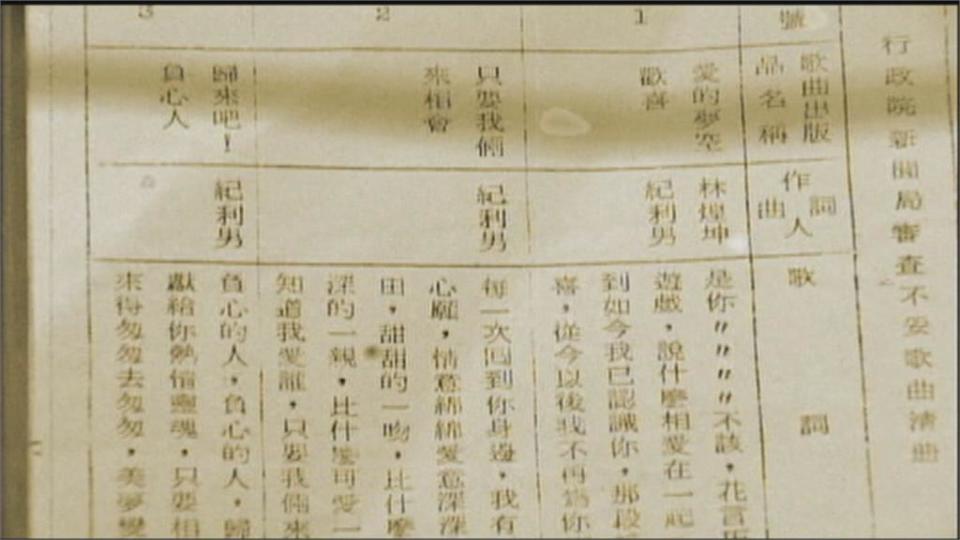 行政院新聞局審查不妥歌曲清曲
號
歌曲出版
品名稱
作詞
曲人
歌詞
1
愛的夢空
歡喜
林煌坤
紀利男
是你〃〃〃〃不該，花言
遊戲，說什麼相愛在一起
到如今我已認識你，那段
喜，從今以後我不再為你
2
只要我倆
來相會
紀利男
每一次回到你身邊，我有
心願，情意綿綿愛意深深
田，甜甜的一吻，比什麼
深的一親，比什麼可愛一
知道我愛誰，只要我倆來
3
歸來吧！
負心人
紀利男
負心的人，負心的人，歸
獻給你熱情靈魂，只要相
來得匆匆去匆匆，美夢變